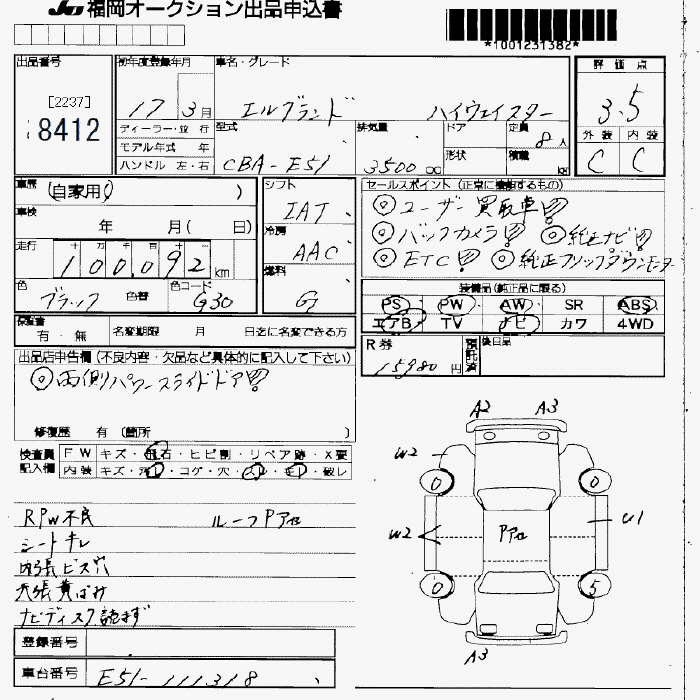 JU 福岡オークション出品申込書
*1001231382*
出品番号
[2237]
8412
初年度登録年月
17 3月
車名・グレード
エルグランド ハイウェイスター
評価点
3.5
外装 内装
C C
ディーラー・並行
モデル年式 年
ハンドル 左・右
型式
CBA-E51
排気量
3500 cc
ドア
形状
定員
8人
積載
車歴
(自家用)
車検
年 月( 日)
走行
十 万 千 百 十 一
100,092 km
色
ブラック
色替
色コード
G30
シフト
IAT
冷房
AAC
燃料
G
セールスポイント(正常に機能するもの)
◎ユーザー買取車!!
◎バックカメラ!! ◎純正ナビ!!
◎ETC!! ◎純正フリップダウンモニター
装備品(純正品に限る)
PS PW AW SR ABS
エアB TV ナビ カワ 4WD
保証書
有・無
名変期限 月 日迄に名変できる方
R券
15980円
預託済
後日品
出品店申告欄(不良内容・欠品など具体的に記入して下さい)
◎両側パワースライドドア!!
修復歴 有 (箇所 )
検査員記入欄
FW キズ・飛石・ヒビ割・リペア跡・X要
内装 キズ・汚れ・コゲ・穴・スレ・キレ・破レ
RPW不良 ルーフPアセ
シートキレ
内張ビス穴
天張黄ばみ
ナビディスク読まず
登録番号
車台番号
E51-111318
A2 A3
W2
0 0
W2 Pアセ U1
0 5
A3